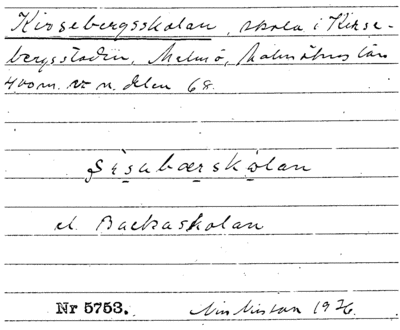 Kirsebergsskolan, skola i Kirse-
bergsstaden, Malmö, Malmöhus län
400 m. v n. delen 68.
Sisabærskolan
el. Backaskolan
Nr 5753. 1926.